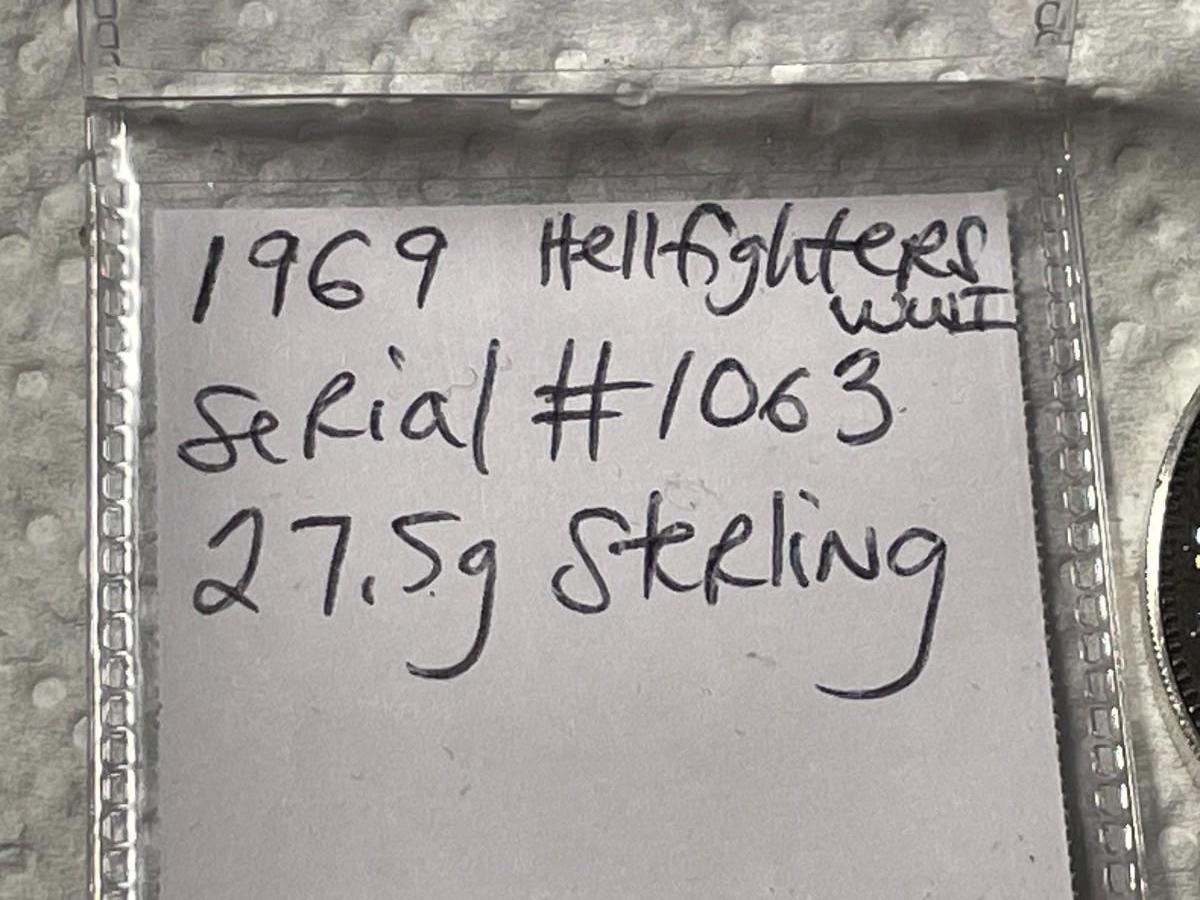 1969 Hellfighters
WWI
Serial #1063
27.5g Sterling